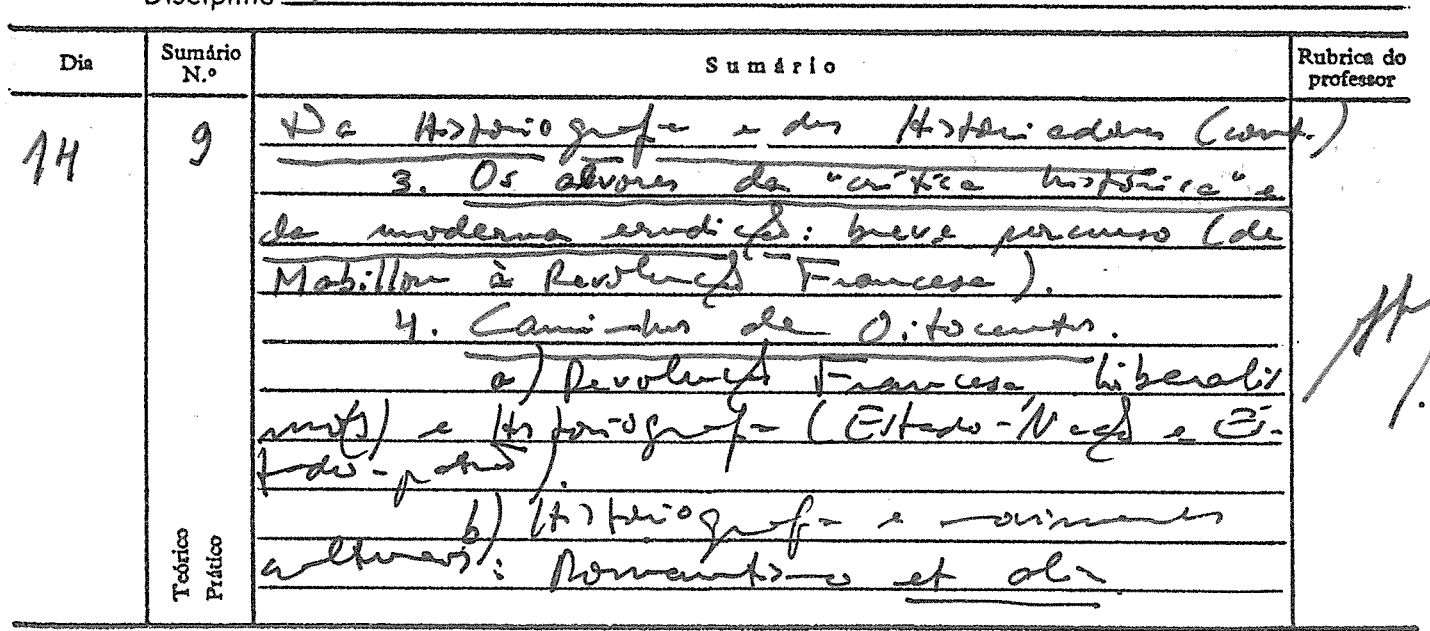 Disciplina
Dia
Sumário N.º
Sumário
Rubrica do professor
14
9
Da Historiografia e dos Historiadores (cont.)
3. Os alvores da "crítica histórica" e
da moderna erudição: breve percurso (de
Mabillon à Revolução Francesa).
4. Caminhos de Oitocentos.
a) Revolução Francesa, liberalis
mo(s) e Historiografia (Estado-Nação e Es-
tado-pátria).
b) Historiografia e movimentos
culturais: Romantismo et alia
Teórico
Prático